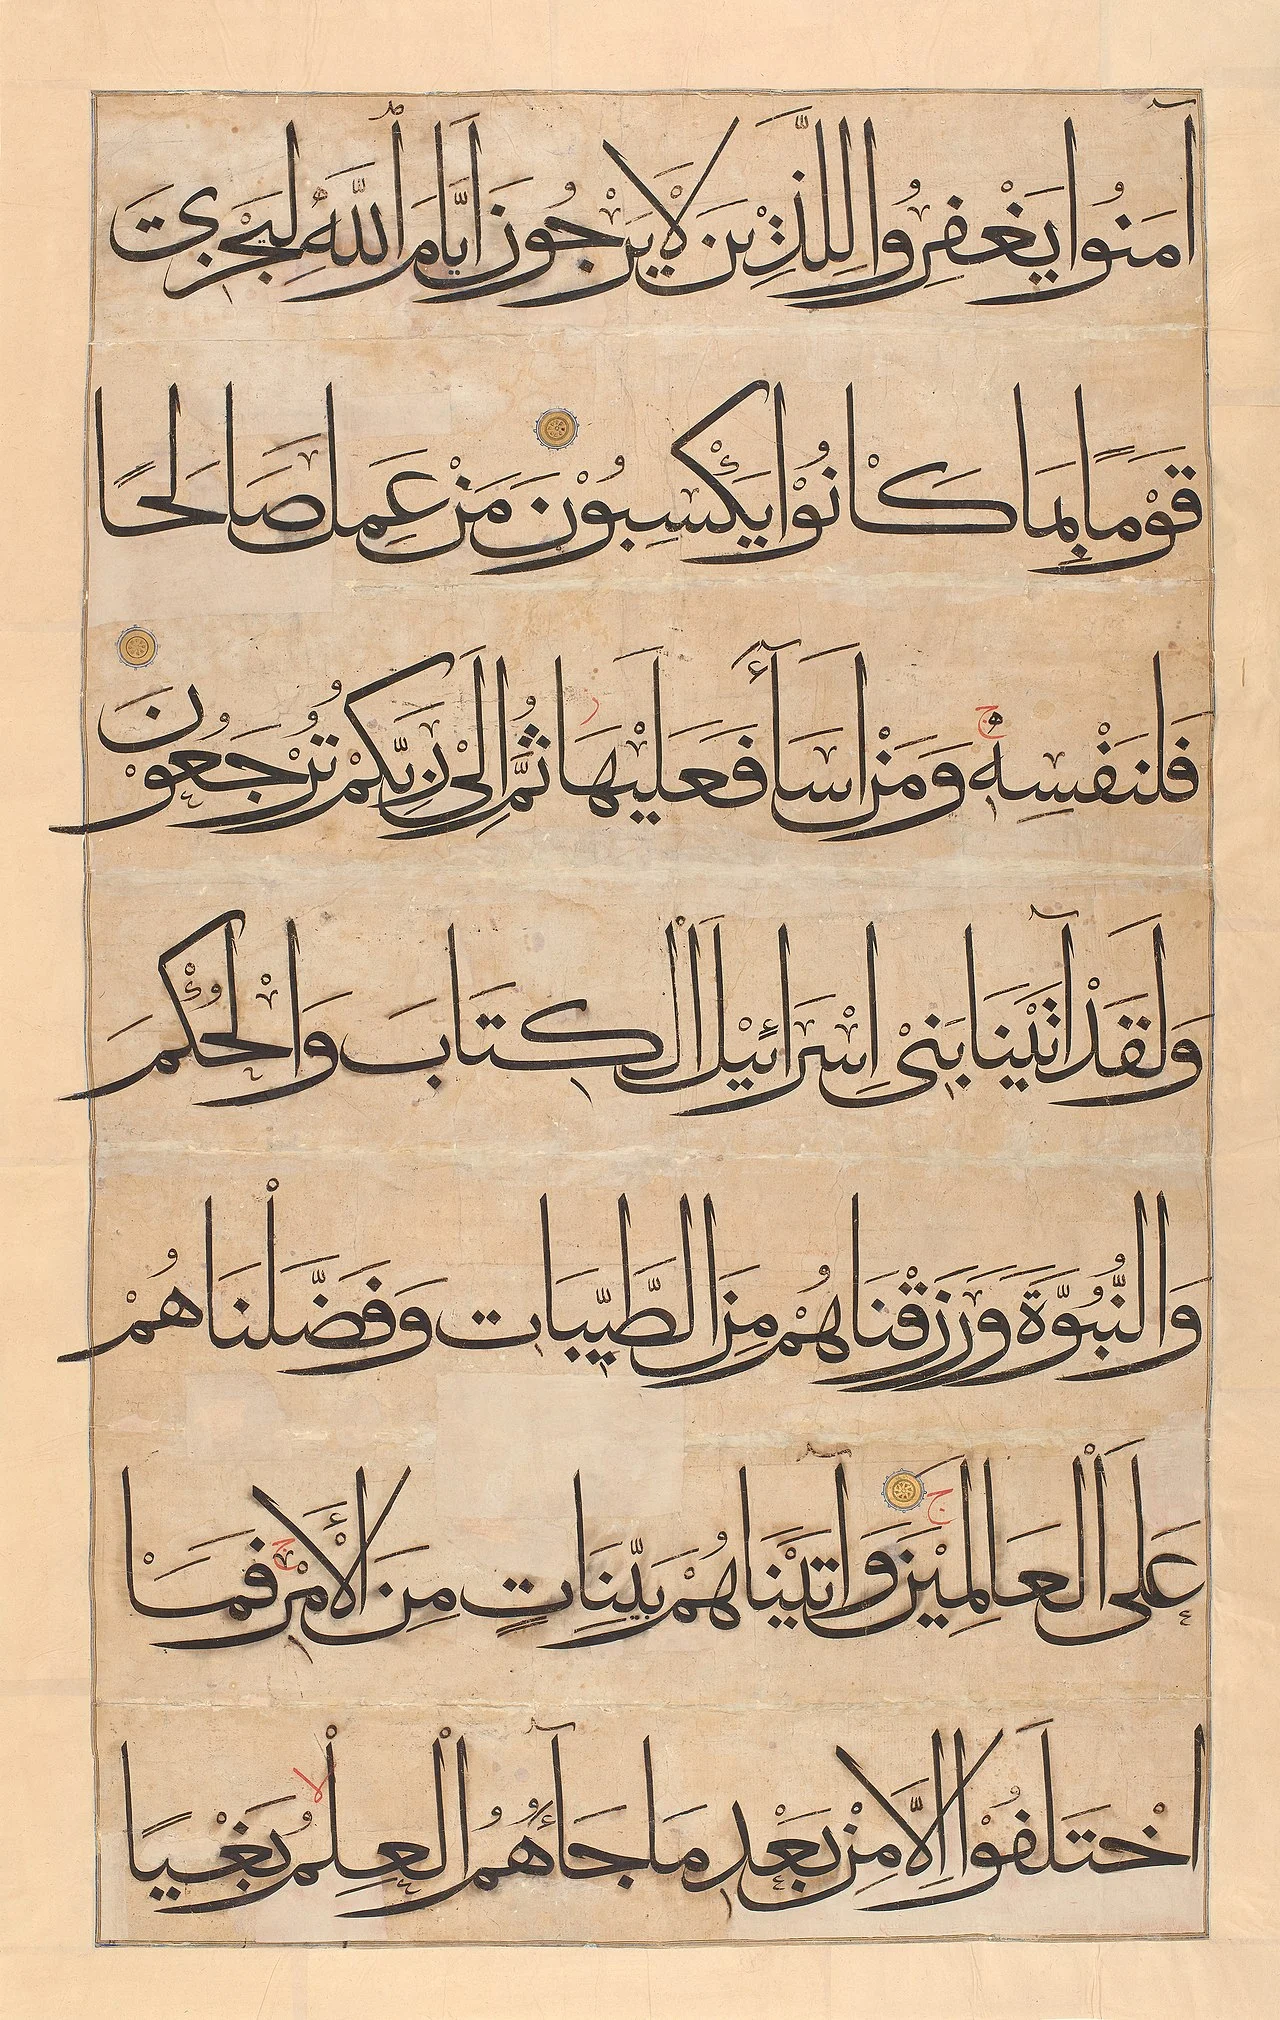 آمَنُوا يَغْفِرُوا لِلَّذِيْنَ لَا يَرْجُونَ أَيَّامَ اللَّهِ لِيَجْزِىَ
قَوْمًا بِمَا كَانُوْا يَكْسِبُوْنَ مَنْ عَمِلَ صَالِحًا
فَلِنَفْسِهِ ج وَمَنْ اَسَآءَ فَعَلَيْهَا ز ثُمَّ اِلَىٰ رَبِّكُمْ تُرْجَعُوْنَ
وَلَقَدْ اٰتَيْنَا بَنِىْ اِسْرَائِيْلَ الْكِتَابَ وَالْحُكْمَ
وَالنُّبُوَّةَ وَرَزَقْنَاهُمْ مِنَ الطَّيِّبَاتِ وَفَضَّلْنَاهُمْ
عَلَى الْعَالَمِيْنَ ج وَآتَيْنَاهُمْ بَيِّنَاتٍ مِنَ الْأَمْرِ ج فَمَا
اخْتَلَفُوْا اِلَّا مِنْ بَعْدِ مَا جَآءَهُمُ الْعِلْمُ لا بَغْيًا